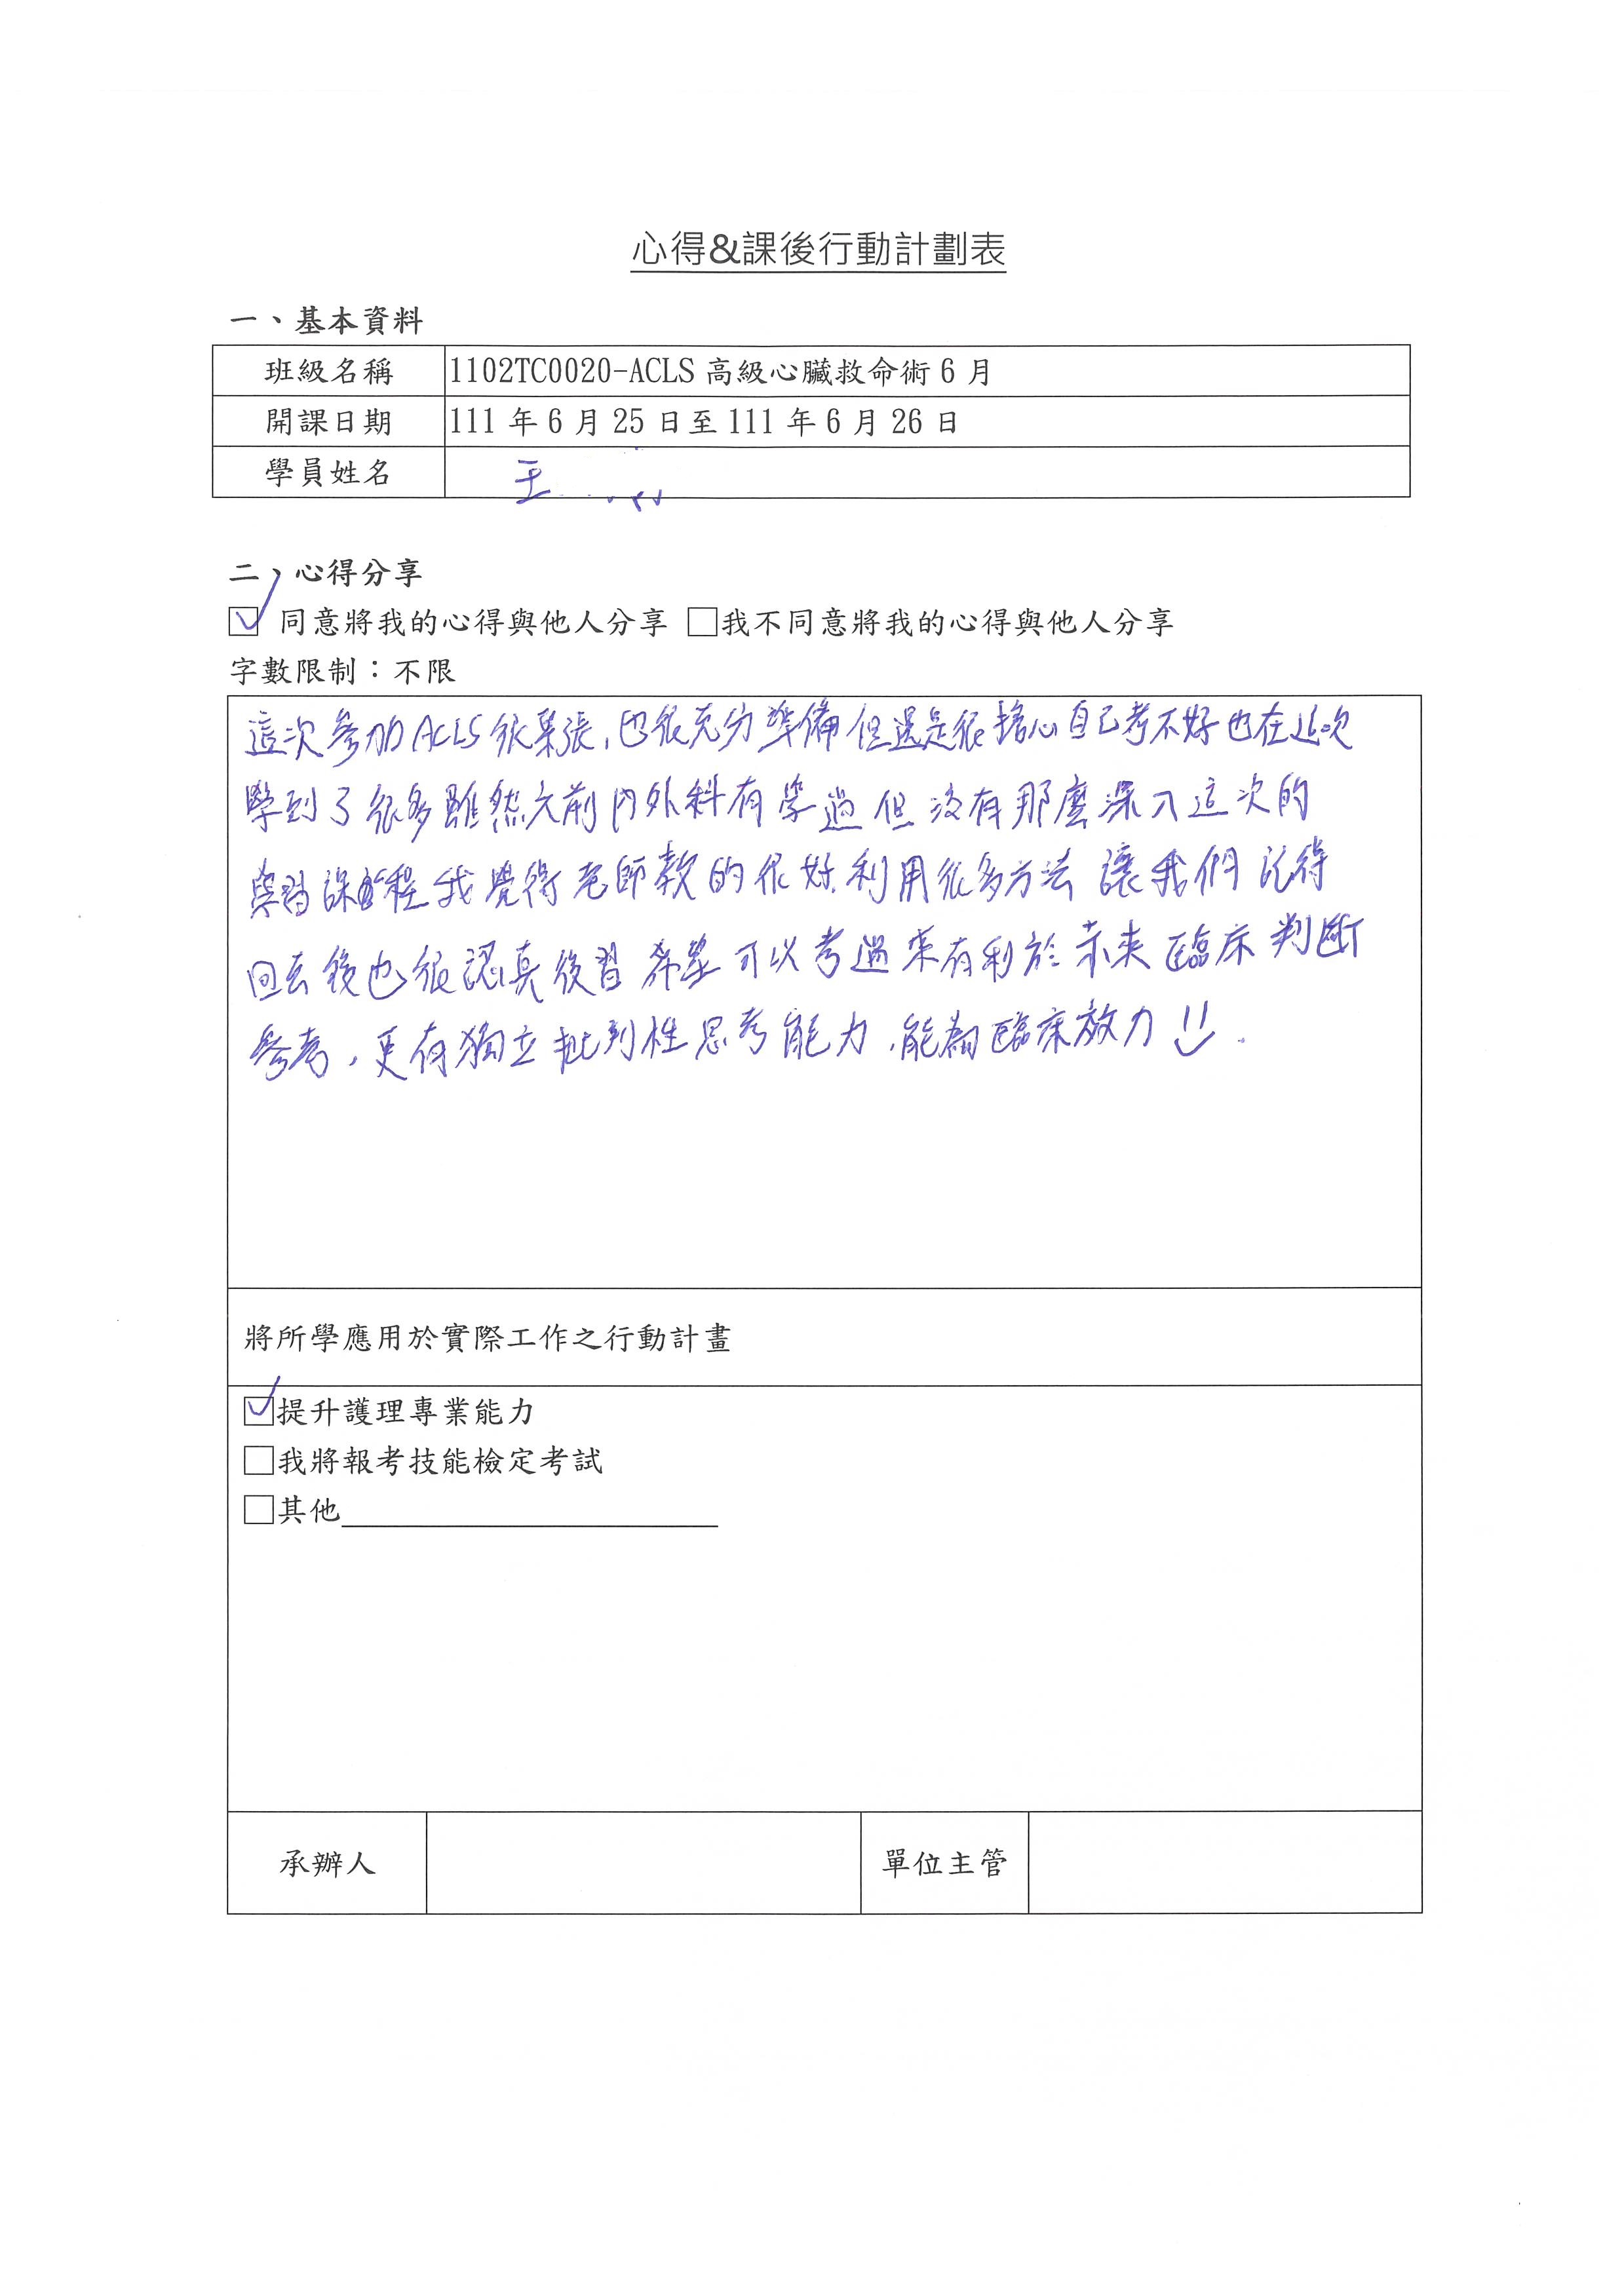 心得&課後行動計劃表
一、基本資料
班級名稱 1102TC0020-ACLS 高級心臟救命術 6 月
開課日期 111 年 6 月 25 日至 111 年 6 月 26 日
學員姓名 王
二、心得分享
☑ 同意將我的心得與他人分享 □我不同意將我的心得與他人分享
字數限制：不限
這次參加 ACLS 很緊張，也很充分準備但還是很擔心自己考不好也在這次
學到了很多雖然之前內外科有學過但沒有那麼深入這次的
學習課程我覺得老師教的很好，利用很多方法讓我們記得
回去後也很認真復習希望可以考過來有利於未來臨床判斷
參考，更有獨立批判性思考能力，能為臨床效力！！
將所學應用於實際工作之行動計畫
☑提升護理專業能力
□我將報考技能檢定考試
□其他
承辦人 單位主管